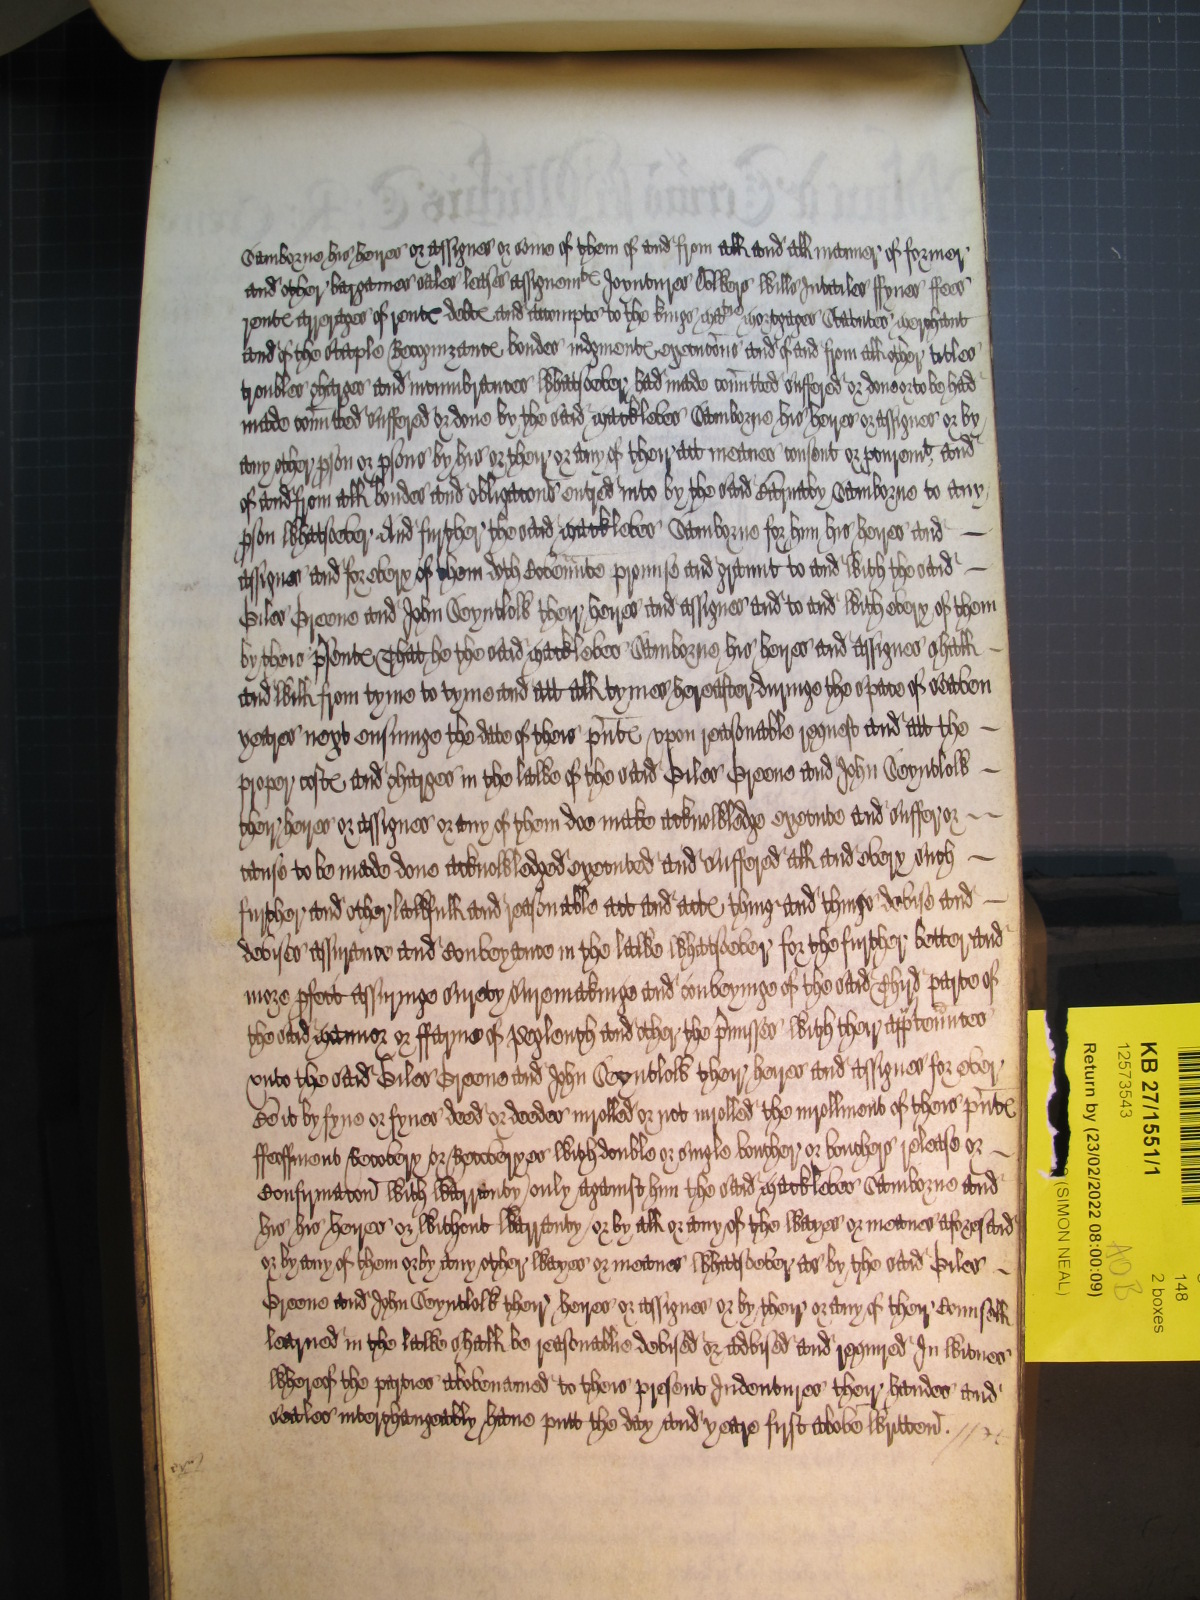 Samborne his heires or assignes or some of them of and from all and all manner of former
and other bargaines sales leases assignemtes Joyntures Dowers Wills Intailes ffynes ffees
rentes arrerages of rentes debtes and accompts to the kings matie mortgages Statutes merchant
and of the staple Recognizances bondes iudgmentes executions and of and from all other titles
troubles charges and incumbrances whatsoever had made comitted suffered or done or to be had
made comitted suffered or done by the said Samborne his heires or assignes or by
any other pson or psons by his or their or any of their act meanes consent or pcuremt and
of and from all bondes and obligacons entred into by the said Barnaby Samborne to any
pson whatsoever And further the said Samborne for him his heires and
assignes and for every of them doth Covennte promise and graunt to and with the said
Giles Greene and John Seyntlow their heires and assignes and to and with every of them
by theis psentes That he the said Samborne his heires and assignes shall
and will from tyme to tyme and att all tymes hereafter duringe the space of Seaben
yeares next ensuinge the date of theis pnts vpon reasonable request and att the
proper costes and charges in the lawe of the said Giles Greene and John Seyntlow
their heires or assignes or any of them doe make acknowledge execute and suffer or
cause to be made done acknowledged executed and suffered all and every such
further and other lawfull and reasonable act and actes thing and things devise and
devises assurance and Conveyance in the lawe whatsoever for the further better and
more pfect assuringe surety suremakinge and conveyinge of the said Third parte of
the said mannor or ffarme of and other the pmisses with their apptennces
vnto the said Giles Greene and John Seyntlow their heires and assignes for ever
Be it by fyne or fynes deed or deedes inrolled or not inrolled the inrollment of theis pnts
ffeoffment Recovery or Recoveryes with double or single voucher or vouchers release or
Confirmacon with warranty only against him the said Samborne and
his his heires or without warranty or by all or any of the wayes or meanes aforesaid
or by any of them or by any other wayes or meanes whatsoever as by the said Giles
Greene and John Seyntlow their heires or assignes or by their or any of their Counsell
learned in the lawe shall be reasonablie devised or advised and required In witnes
whereof the parties abovenamed to theis present Indentures their handes and
seales interchangeably have putt the day and yeare first above written.
KB 27/1551/1
12573543
Return by (23/02/2022 08:00:09)
(SIMON NEAL)
148
2 boxes